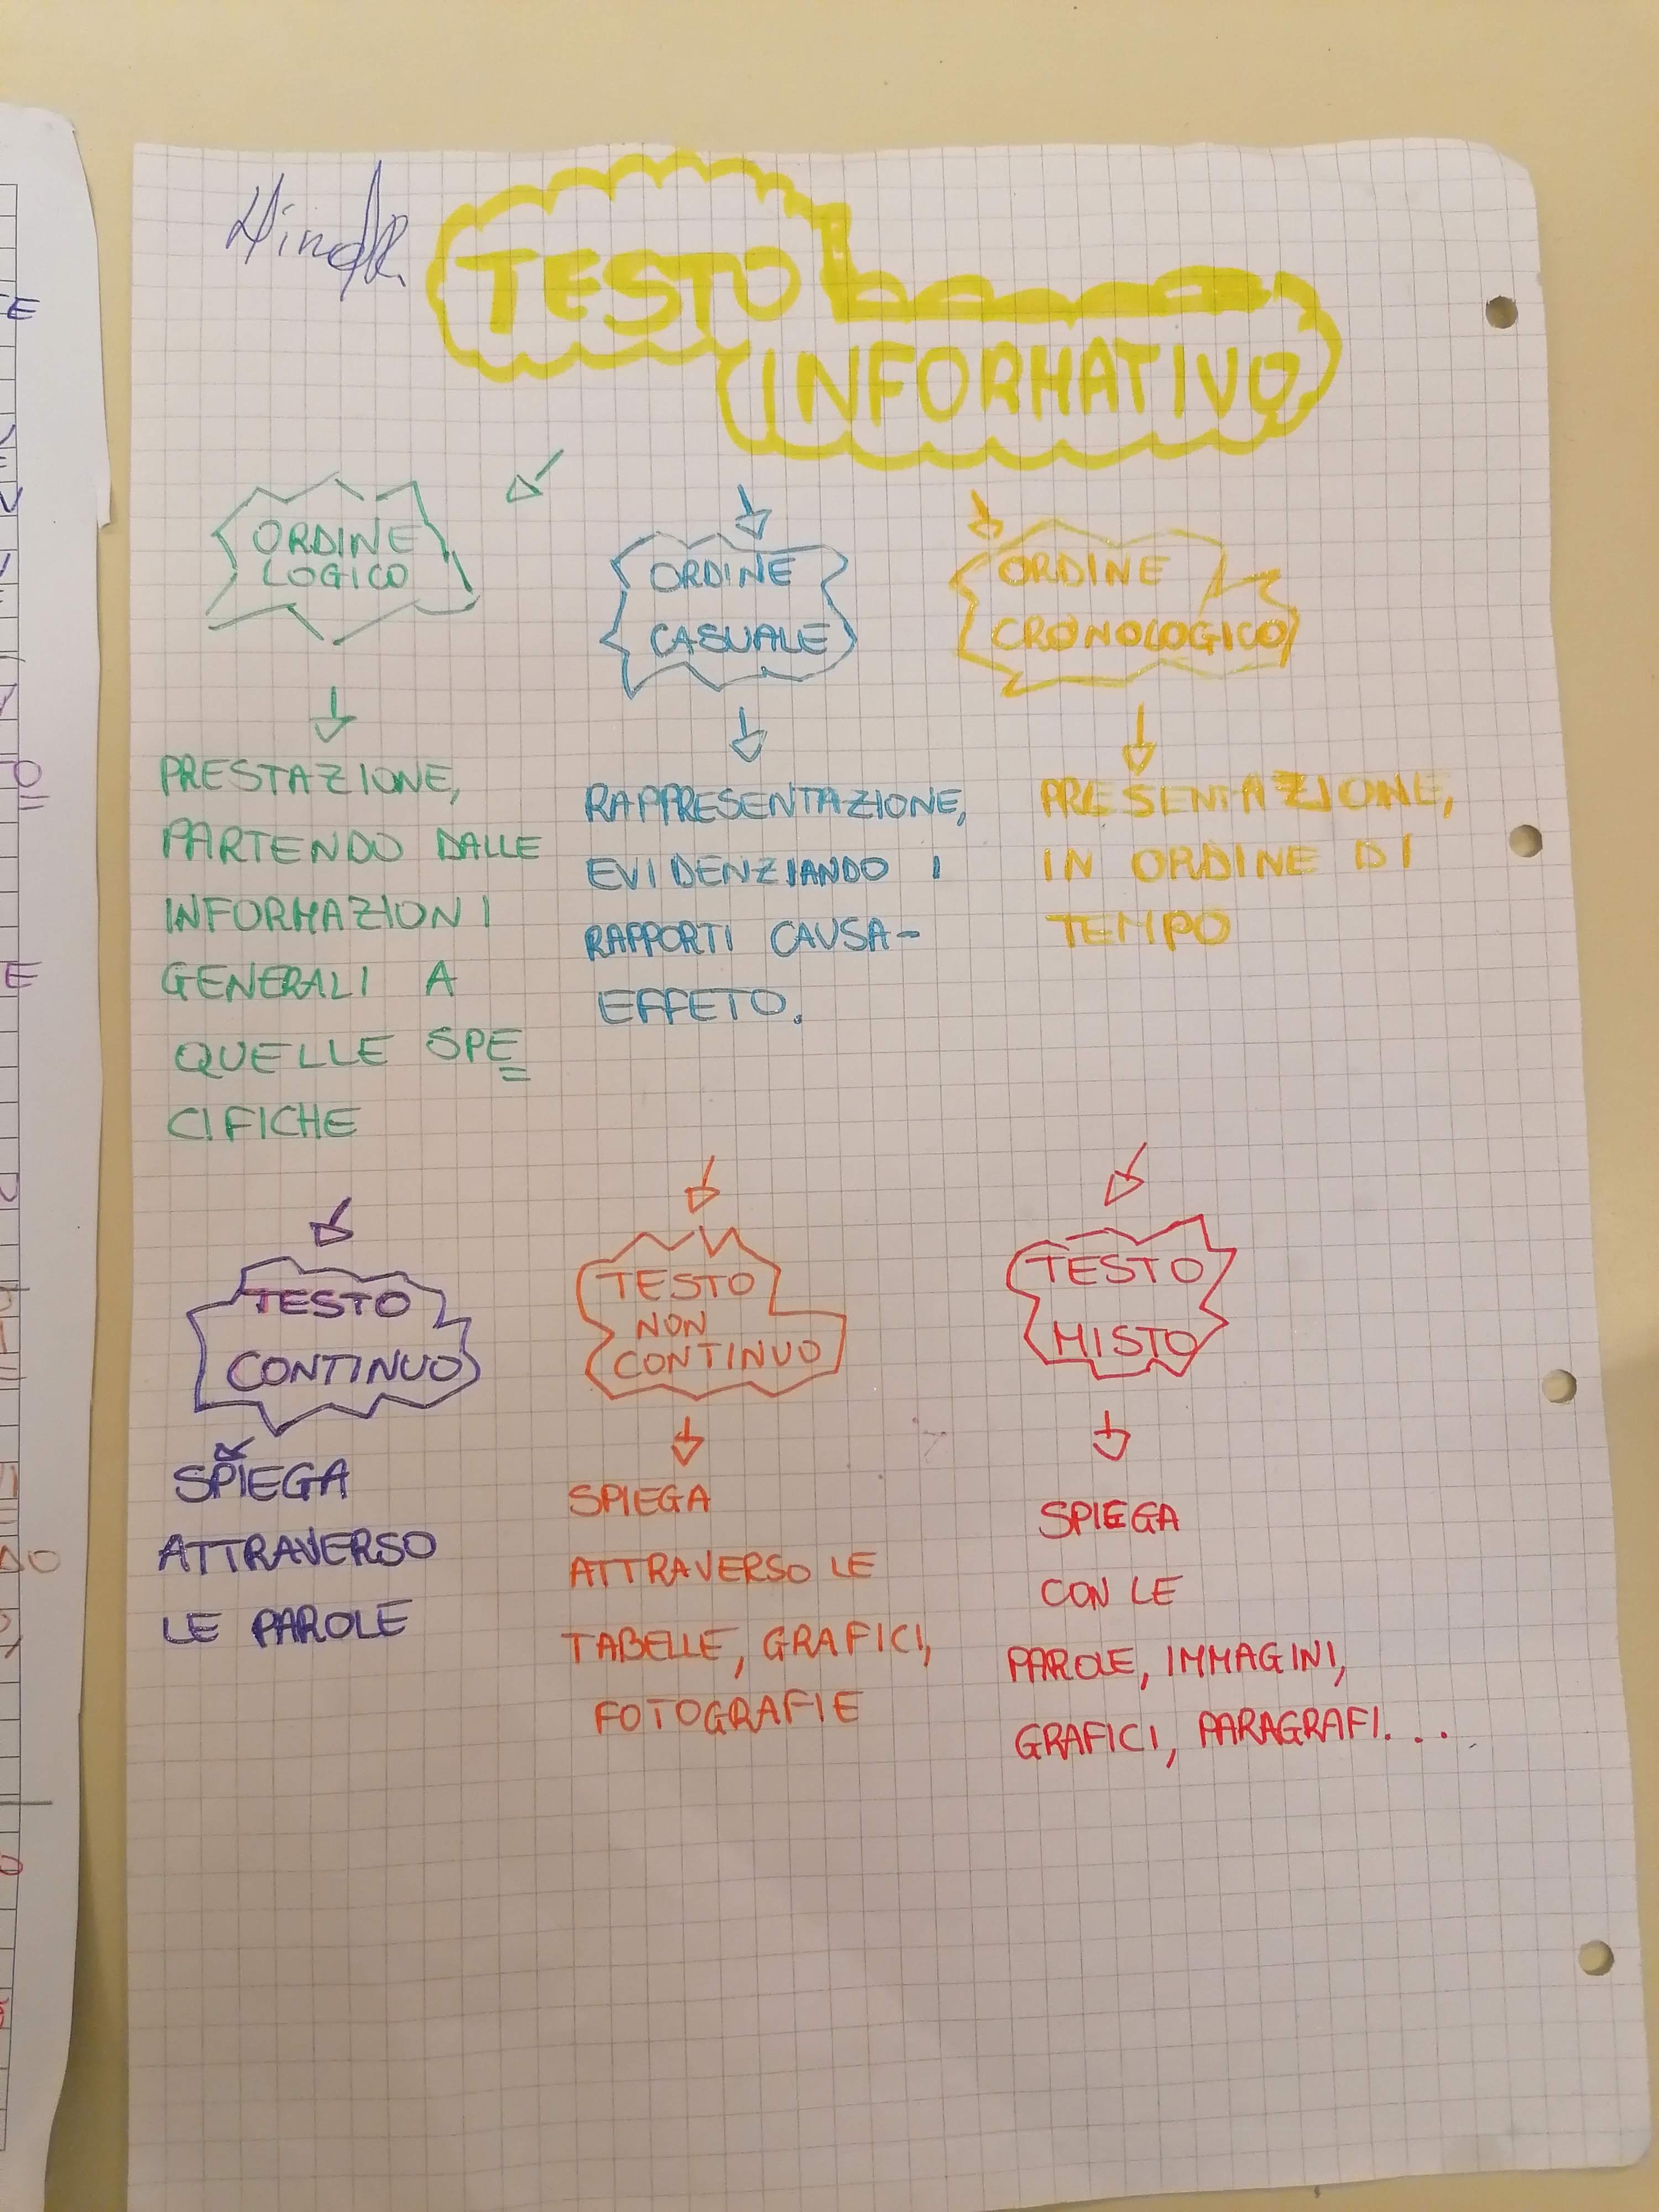 TESTO
INFORMATIVO
ORDINE
LOGICO
PRESTAZIONE,
PARTENDO DALLE
INFORMAZIONI
GENERALI A
QUELLE SPE
CIFICHE
ORDINE
CASUALE
RAPPRESENTAZIONE,
EVIDENZIANDO I
RAPPORTI CAUSA-
EFFETO.
ORDINE
CRONOLOGICO
PRESENTAZIONE,
IN ORDINE DI
TEMPO
TESTO
CONTINUO
SPIEGA
ATTRAVERSO
LE PAROLE
TESTO
NON
CONTINUO
SPIEGA
ATTRAVERSO LE
TABELLE, GRAFICI,
FOTOGRAFIE
TESTO
MISTO
SPIEGA
CON LE
PAROLE, IMMAGINI,
GRAFICI, PARAGRAFI...